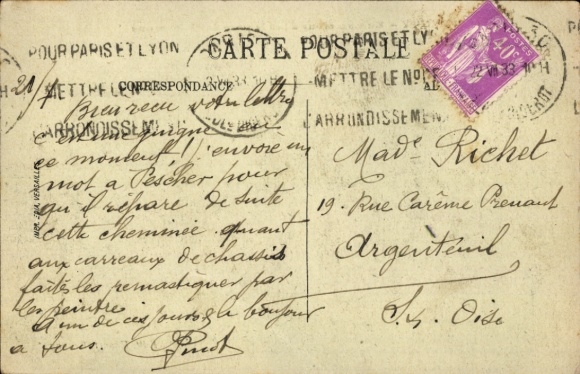 POUR PARIS ET LYON
METTRE LE No
ARRONDISSEMENT
CARTE POSTALE
POUR PARIS ET LYON
METTRE LE No
ARRONDISSEMENT
40c
22 VII 33
CORRESPONDANCE
21/7
Bien reçu votre lettre
c'est une guigne
ce moment! J'envoie un
mot a Pescher pour
qu'il répare de suite
cette cheminée quant
aux carreaux de chassis
faites les remastiquer par
les peintres
a un de ces jours & le bonjour
a tous. Pinot
Made Richet
19. Rue Carême Prenant
Argenteuil
S. & Oise
IMP. EDIA VERSAILLES